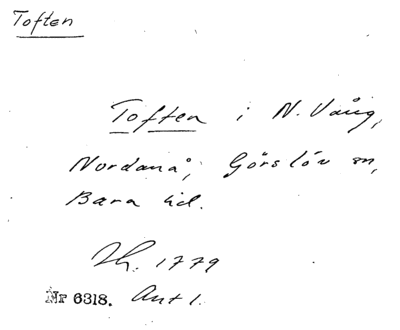 Toften
Toften i N. Vång,
Nordanå, Görslöv sn,
Bara hd.
Sk. 1779
Nr 6318. Akt 1.